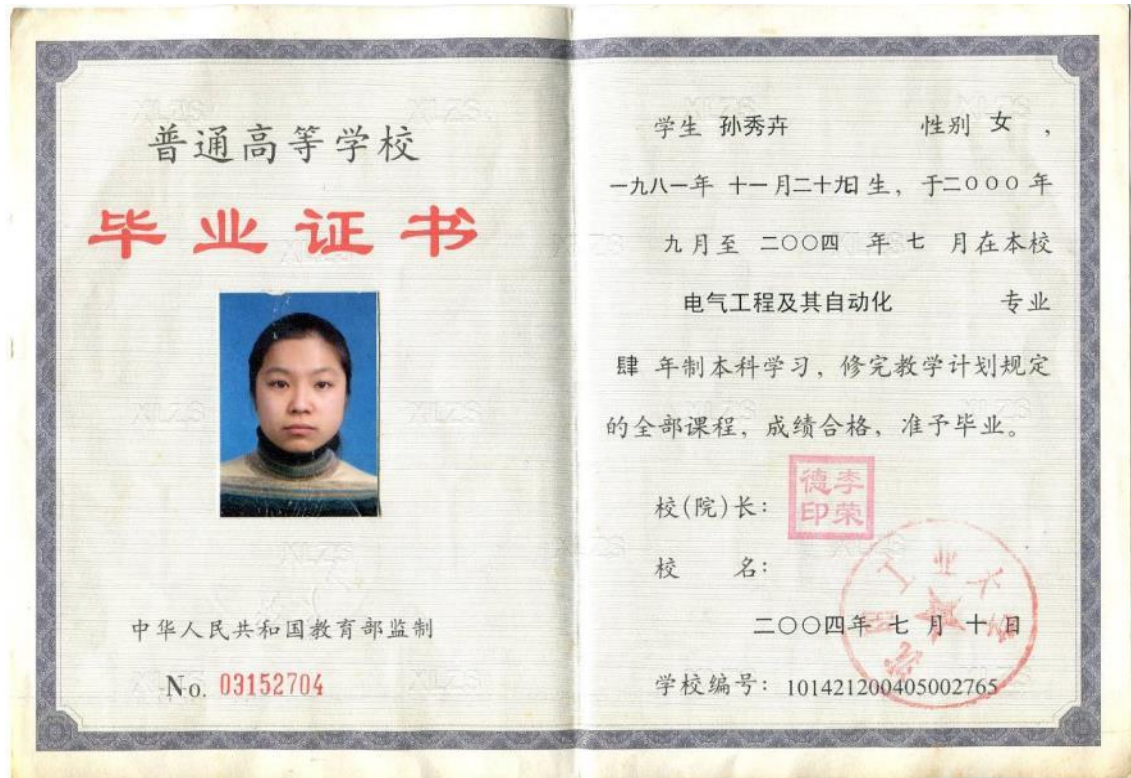 普通高等学校
毕业证书
中华人民共和国教育部监制
No. 03152704
学生 孙秀卉 性别 女 ,
一九八一年 十一月二十九日生, 于二000年
九月至 二○○四 年 七 月在本校
电气工程及其自动化 专业
肆 年制本科学习, 修完教学计划规定
的全部课程, 成绩合格, 准予毕业。
校(院)长:
李荣德印
校 名:
工业大学
二○○四年 七 月 十 日
学校编号: 101421200405002765